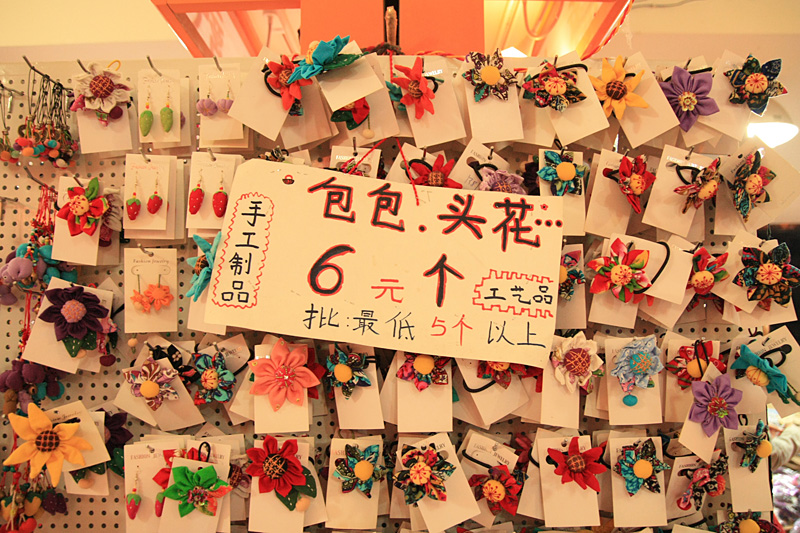 手工制品
包包.头花…
6元个
工艺品
批:最低5个以上
Fashion Jewelry